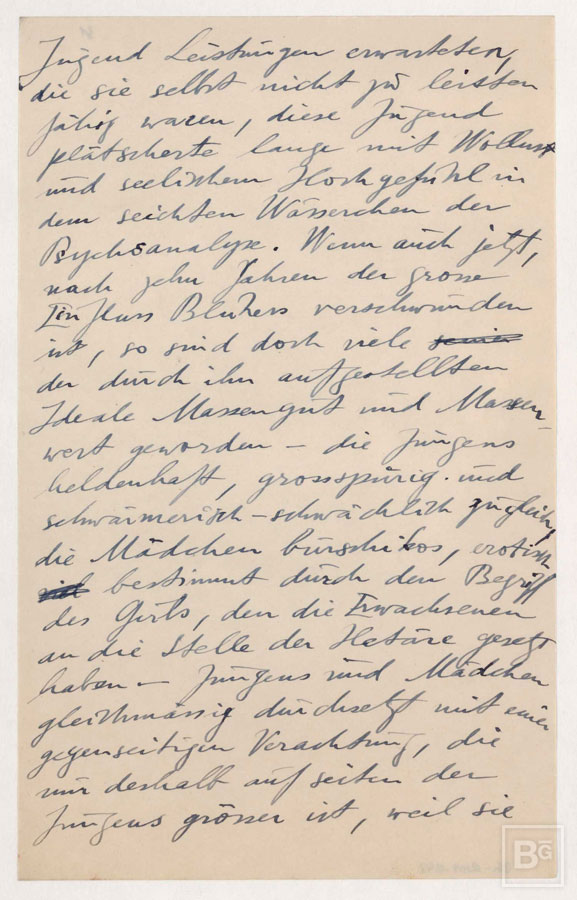 Jugend Leistungen erwarteten,
die sie selbst nicht zu leisten
fähig waren, diese Jugend
plätscherte lange mit Wollust
und seelischem Hochgefühl in
dem seichten Wässerchen der
Psychoanalyse. Wenn auch jetzt,
nach zehn Jahren der grosse
Einfluss Blühers verschwunden
ist, so sind doch viele seiner
der durch ihn aufgestellten
Ideale Massengut und Massen-
wert geworden – die Jungens
heldenhaft, grossspurig und
schwärmerisch-schwächlich zugleich,
die Mädchen burschikos, erotisch
bestimmt durch den Begriff
des Girls, den die Erwachsenen
an die Stelle der Hetäre gesetzt
haben – Jungens und Mädchen
gleichmässig durchsetzt mit einer
gegenseitigen Verachtung, die
nur deshalb auf seiten der
Jungens grösser ist, weil sie
BG